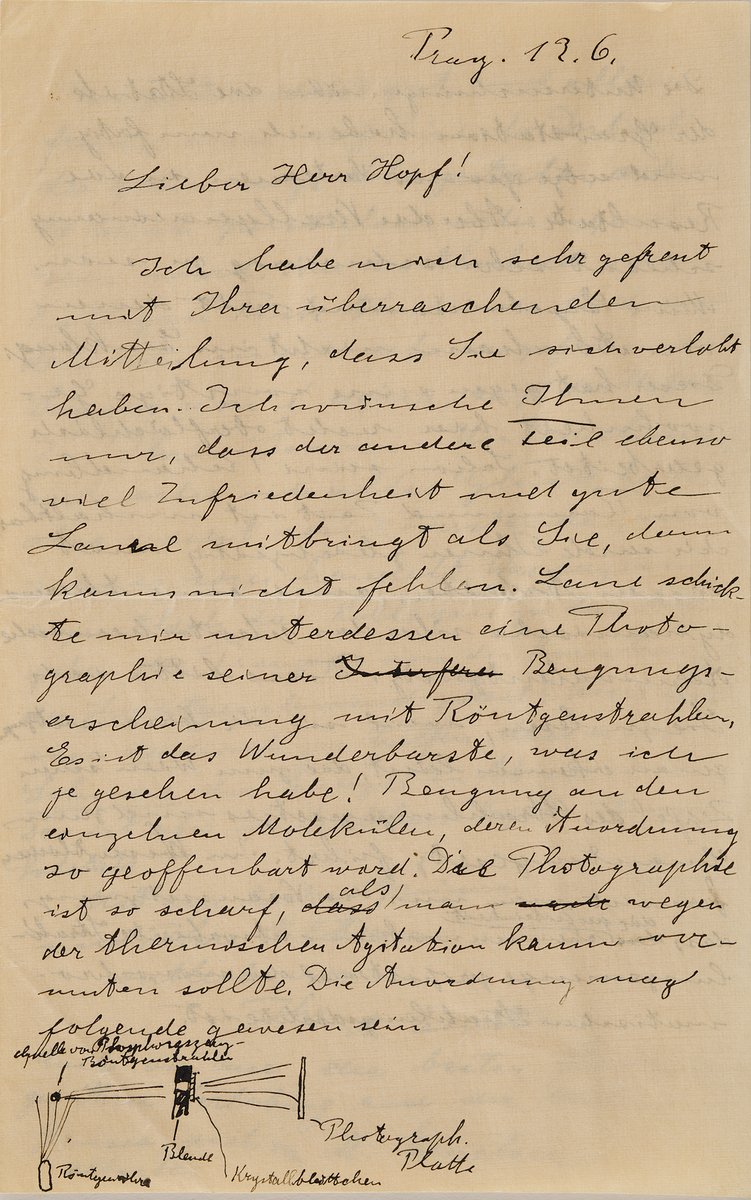 Prag. 12.6.
Lieber Herr Hopf!
Ich habe mich sehr gefreut
mit Ihrer überraschenden
Mitteilung, dass Sie sich verlobt
haben. Ich wünsche Ihnen
nur, dass der andere Teil ebenso
viel Zufriedenheit und gute
Laune mitbringt als Sie, dann
kanns nicht fehlen. Laue schick-
te mir unterdessen eine Photo-
graphie seiner Interferen Beugungs-
erscheinung mit Röntgenstrahlen,
Es ist das Wunderbarste, was ich
je gesehen habe! Beugung an den
einzelnen Molekülen, deren Anordnung
so geoffenbart word. Die Photographie
ist so scharf, dass als man nach wegen
der thermischen Agitation kaum ver-
muten sollte. Die Anordnung mag
folgende gewesen sein
Quelle von Phosphoreszenz-
Röntgenstrahlen
Blende
Photograph.
Platte
Röntgenröhre
Krystallblättchen